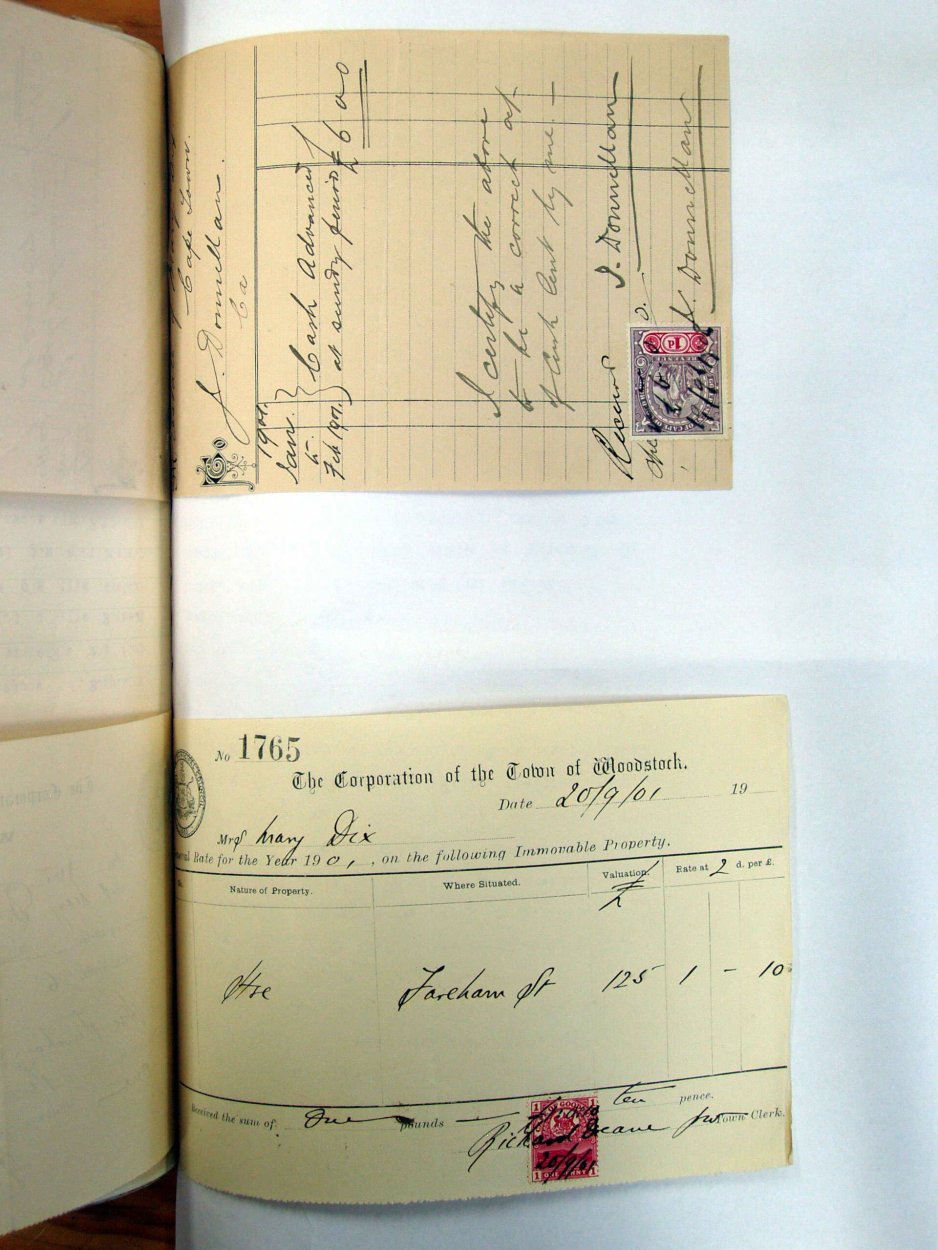 Cape Town.
J. Donnellan.
1901.
Jany. } Cash Advanced
to
Feb 1901. at sundry periods £ 6 0 0
I certify the above
to be a correct a/c
of Cash lent by me. —
J. Donnellan
J. Donnellan
No 1765
The Corporation of the Town of Woodstock.
Date 20/9/01 19
Mrs Mary Dix
Rate for the Year 190 1, on the following Immovable Property.
Nature of Property. Where Situated. Valuation. Rate at 2 d. per £.
£
Hse Fareham St 125 1 - 10
Received the sum of One pounds — ten pence.
Richard Deane pro Town Clerk.
ONE PENNY
20/9/01